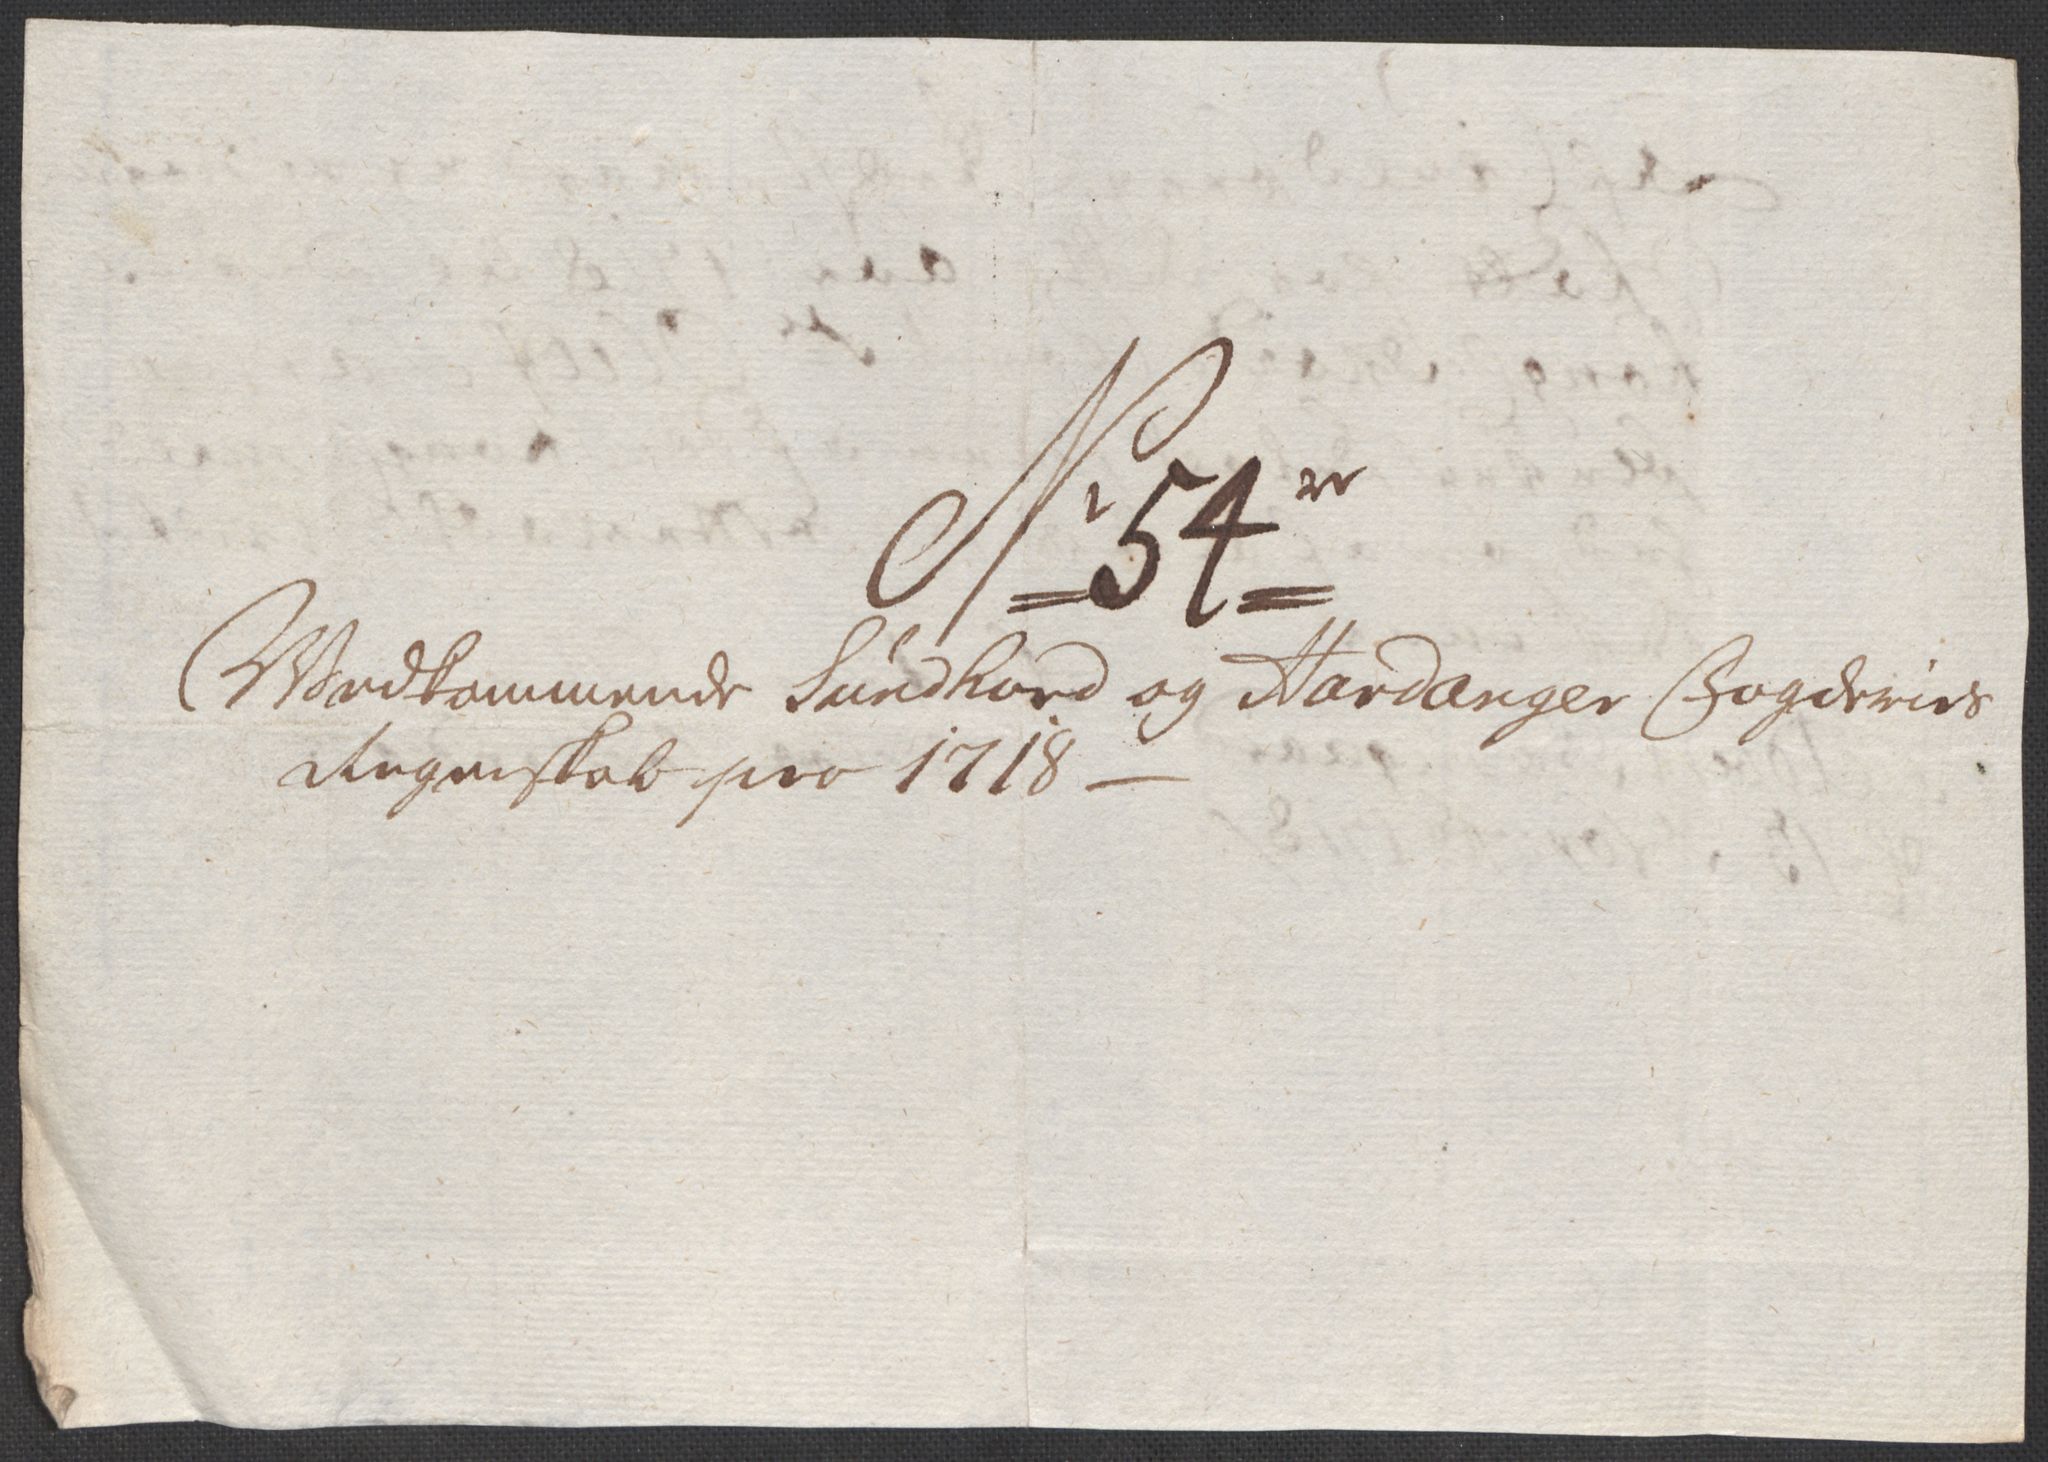 No 54
Wedkommende Sundhord og Hardanger Fogderies
Regenskab pro 1718